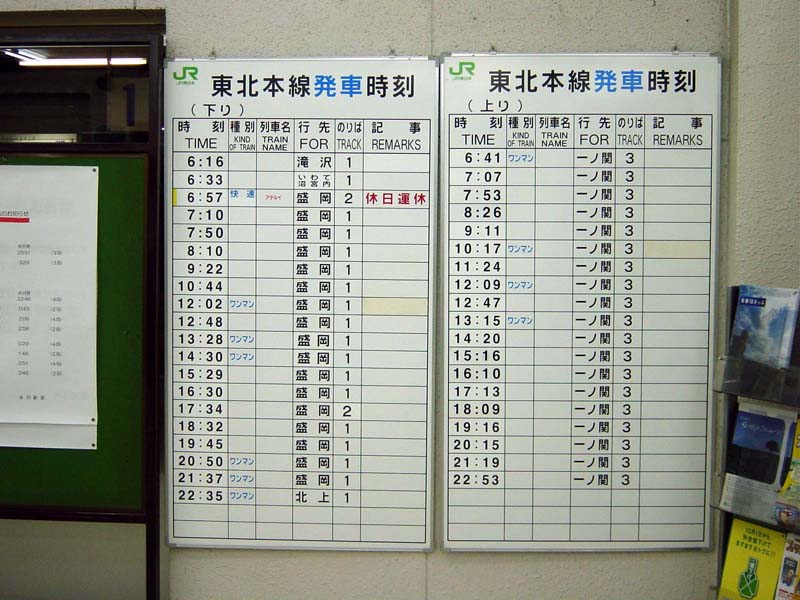 JR 東北本線発車時刻
JR東日本
（下り）
時刻 種別 列車名 行先 のりば 記事
TIME KIND OF TRAIN TRAIN NAME FOR TRACK REMARKS
6:16 滝沢 1
6:33 いわて沼宮内 1
6:57 快速 アテルイ 盛岡 2 休日運休
7:10 盛岡 1
7:50 盛岡 1
8:10 盛岡 1
9:22 盛岡 1
10:44 盛岡 1
12:02 ワンマン 盛岡 1
12:48 盛岡 1
13:28 ワンマン 盛岡 1
14:30 ワンマン 盛岡 1
15:29 盛岡 1
16:30 盛岡 1
17:34 盛岡 2
18:32 盛岡 1
19:45 盛岡 1
20:50 ワンマン 盛岡 1
21:37 ワンマン 盛岡 1
22:35 ワンマン 北上 1
JR 東北本線発車時刻
JR東日本
（上り）
時刻 種別 列車名 行先 のりば 記事
TIME KIND OF TRAIN TRAIN NAME FOR TRACK REMARKS
6:41 ワンマン 一ノ関 3
7:07 一ノ関 3
7:53 一ノ関 3
8:26 一ノ関 3
9:11 一ノ関 3
10:17 ワンマン 一ノ関 3
11:24 一ノ関 3
12:09 ワンマン 一ノ関 3
12:47 一ノ関 3
13:15 ワンマン 一ノ関 3
14:20 一ノ関 3
15:16 一ノ関 3
16:10 一ノ関 3
17:13 一ノ関 3
18:09 一ノ関 3
19:16 一ノ関 3
20:15 一ノ関 3
21:19 一ノ関 3
22:53 一ノ関 3
のお知らせ
1
12月1日から